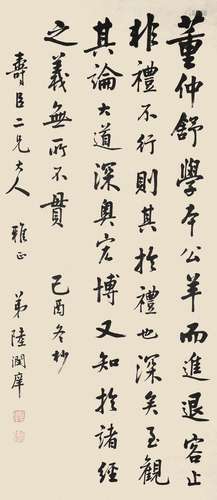 董仲舒學本公羊而進退容止
非禮不行則其於禮也深矣至觀
其論大道深奧宏博又知於諸經
之義無所不貫 己酉冬抄
壽臣二兄大人 雅正
弟陸潤庠